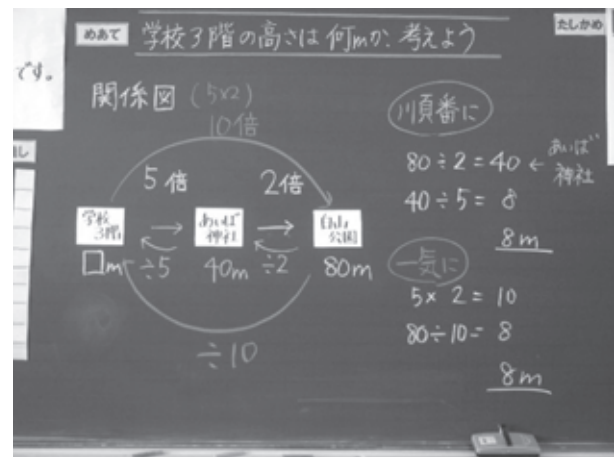 めあて 学校3階の高さは何mか、考えよう
たしかめ
です。
関係図 (5×2)
10倍
5倍 2倍
学校3階 → あいば神社 → 白山公園
□m ÷5 40m ÷2 80m
÷10
順番に
80÷2=40 ← あいば神社
40÷5= 8
8m
一気に
5×2=10
80÷10=8
8m